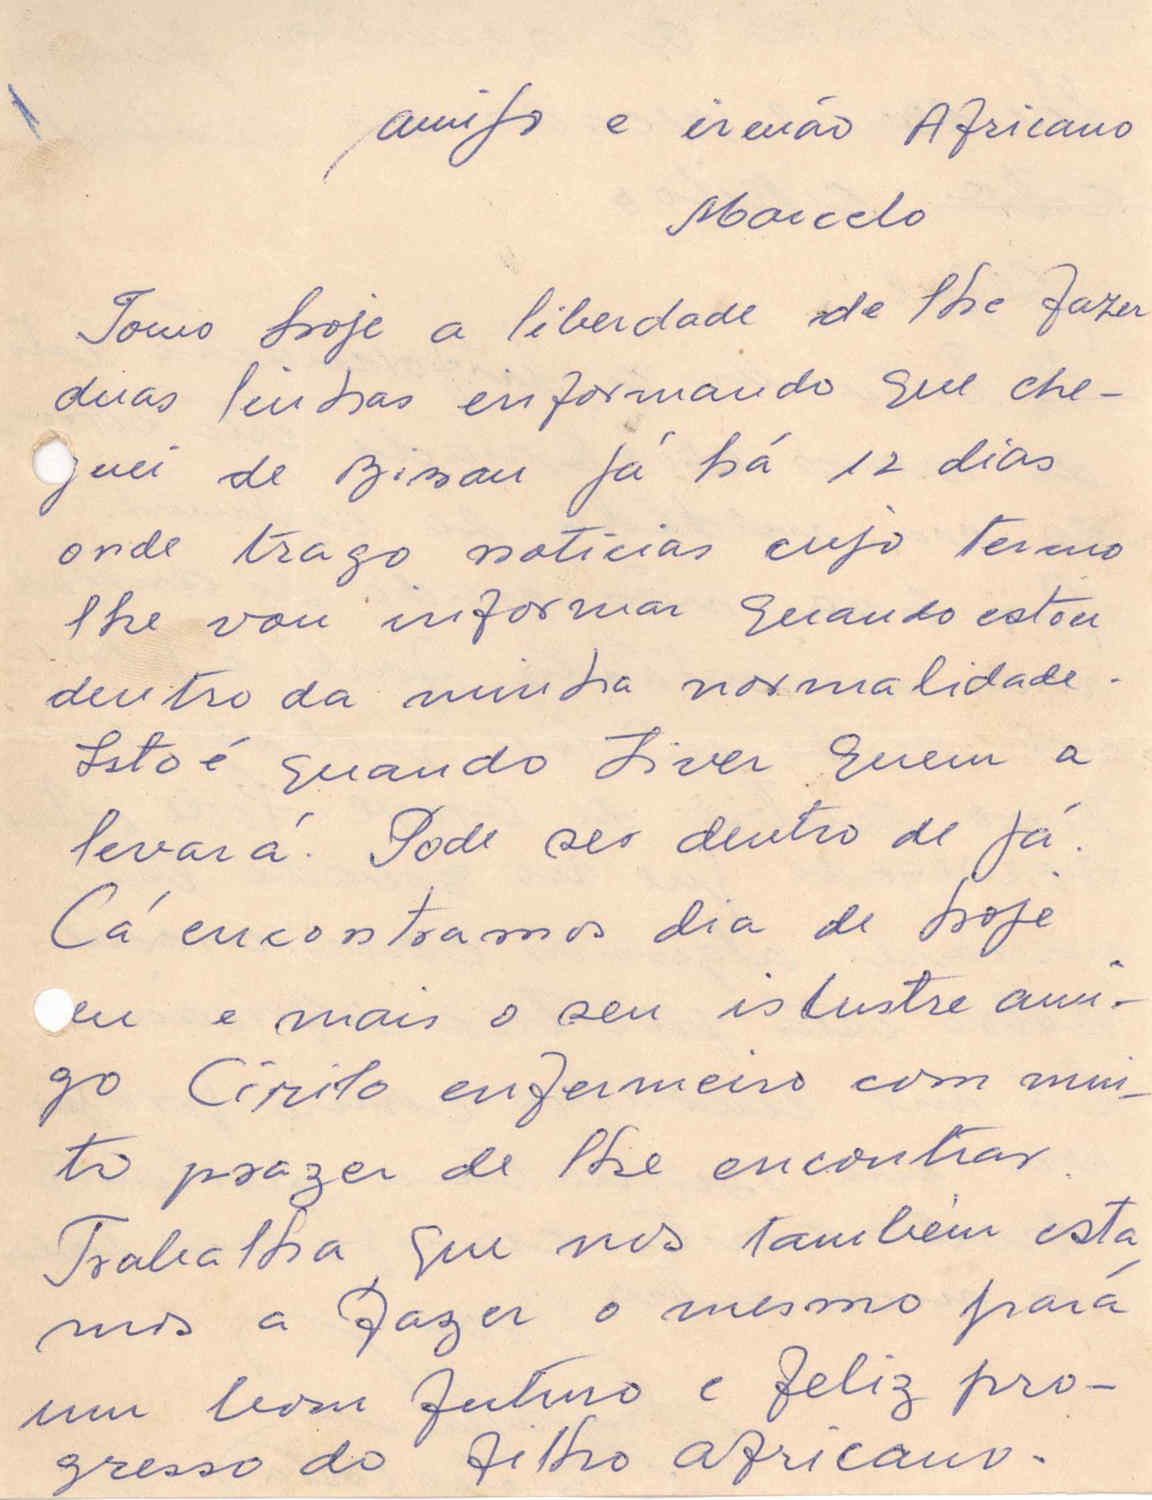 amigo e irmão Africano
Marcelo
Tomo hoje a liberdade de lhe fazer
duas linhas informando que che-
guei de Bissau já há 12 dias
onde trago noticias cujo termo
lhe vou informar quando estou
dentro da minha normalidade.
Isto é quando tiver quem a
levará. Pode ser dentro de já.
Cá encontramos dia de hoje
eu e mais o seu islustre ami-
go Cirilo enfermeiro com mui-
to prazer de lhe encontrar.
Trabalha que nós também esta
mos a fazer o mesmo pará
um bom futuro e feliz pro-
gresso do filho africano.